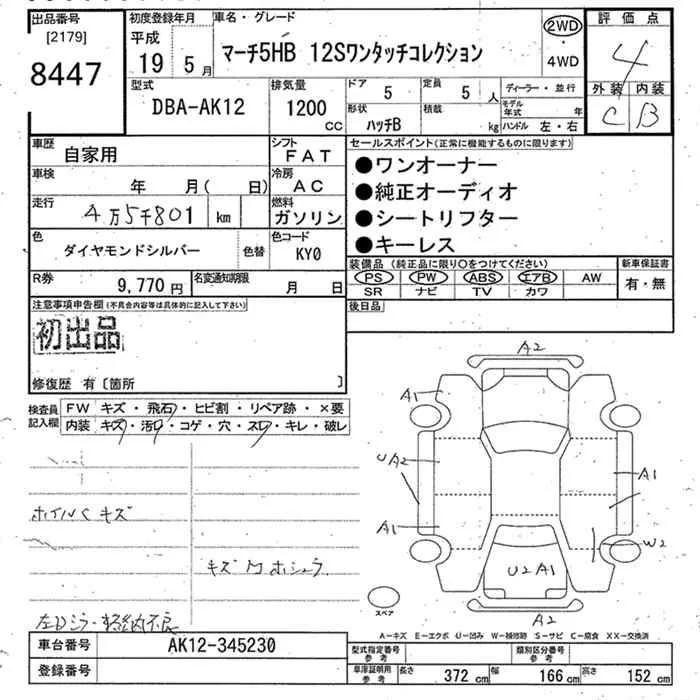 出品番号 初度登録年月 車名・グレード 2WD 評価点
[2179] 平成
8447 19年 5月 マーチ5HB 12Sワンタッチコレクション ・4WD 4
型式 排気量 ドア 5 定員 5人 ディーラー・並行 外装 内装
DBA-AK12 1200cc 形状 ハッチB 積載 kg モデル年式 年 C B
ハンドル 左・右
車歴 自家用 シフト FAT セールスポイント(正常に機能するものに限ります)
車検 年 月( 日) 冷房 AC ●ワンオーナー
走行 4万5千801 km 燃料 ガソリン ●純正オーディオ
●シートリフター
色 ダイヤモンドシルバー 色替 色コード KY0 ●キーレス
R券 9,770円 名変通知期限 月 日 装備品(純正品に限り○をつけてください) 新車保証書
PS PW ABS エアB AW 有・無
SR ナビ TV カワ
注意事項申告欄(不具合内容等は具体的に記入して下さい) 後日品
初出品
修復歴 有〔箇所 〕
検査員記入欄 FW キズ・飛石・ヒビ割・リペア跡・×要
内装 キズ・汚れ・コゲ・穴・スレ・キレ・破レ
A2
A1
UA2 A1
ホイルCキズ A1 W2
キズ U2 A1
スペア A2
左Dミラー
A-キズ E-エクボ U-凹み W-補修跡 S-サビ C-腐食 XX-交換済
車台番号 AK12-345230 型式指定番号 参考 類別区分番号 参考
登録番号 車庫証明用 参考 長さ 372cm 幅 166cm 高さ 152cm